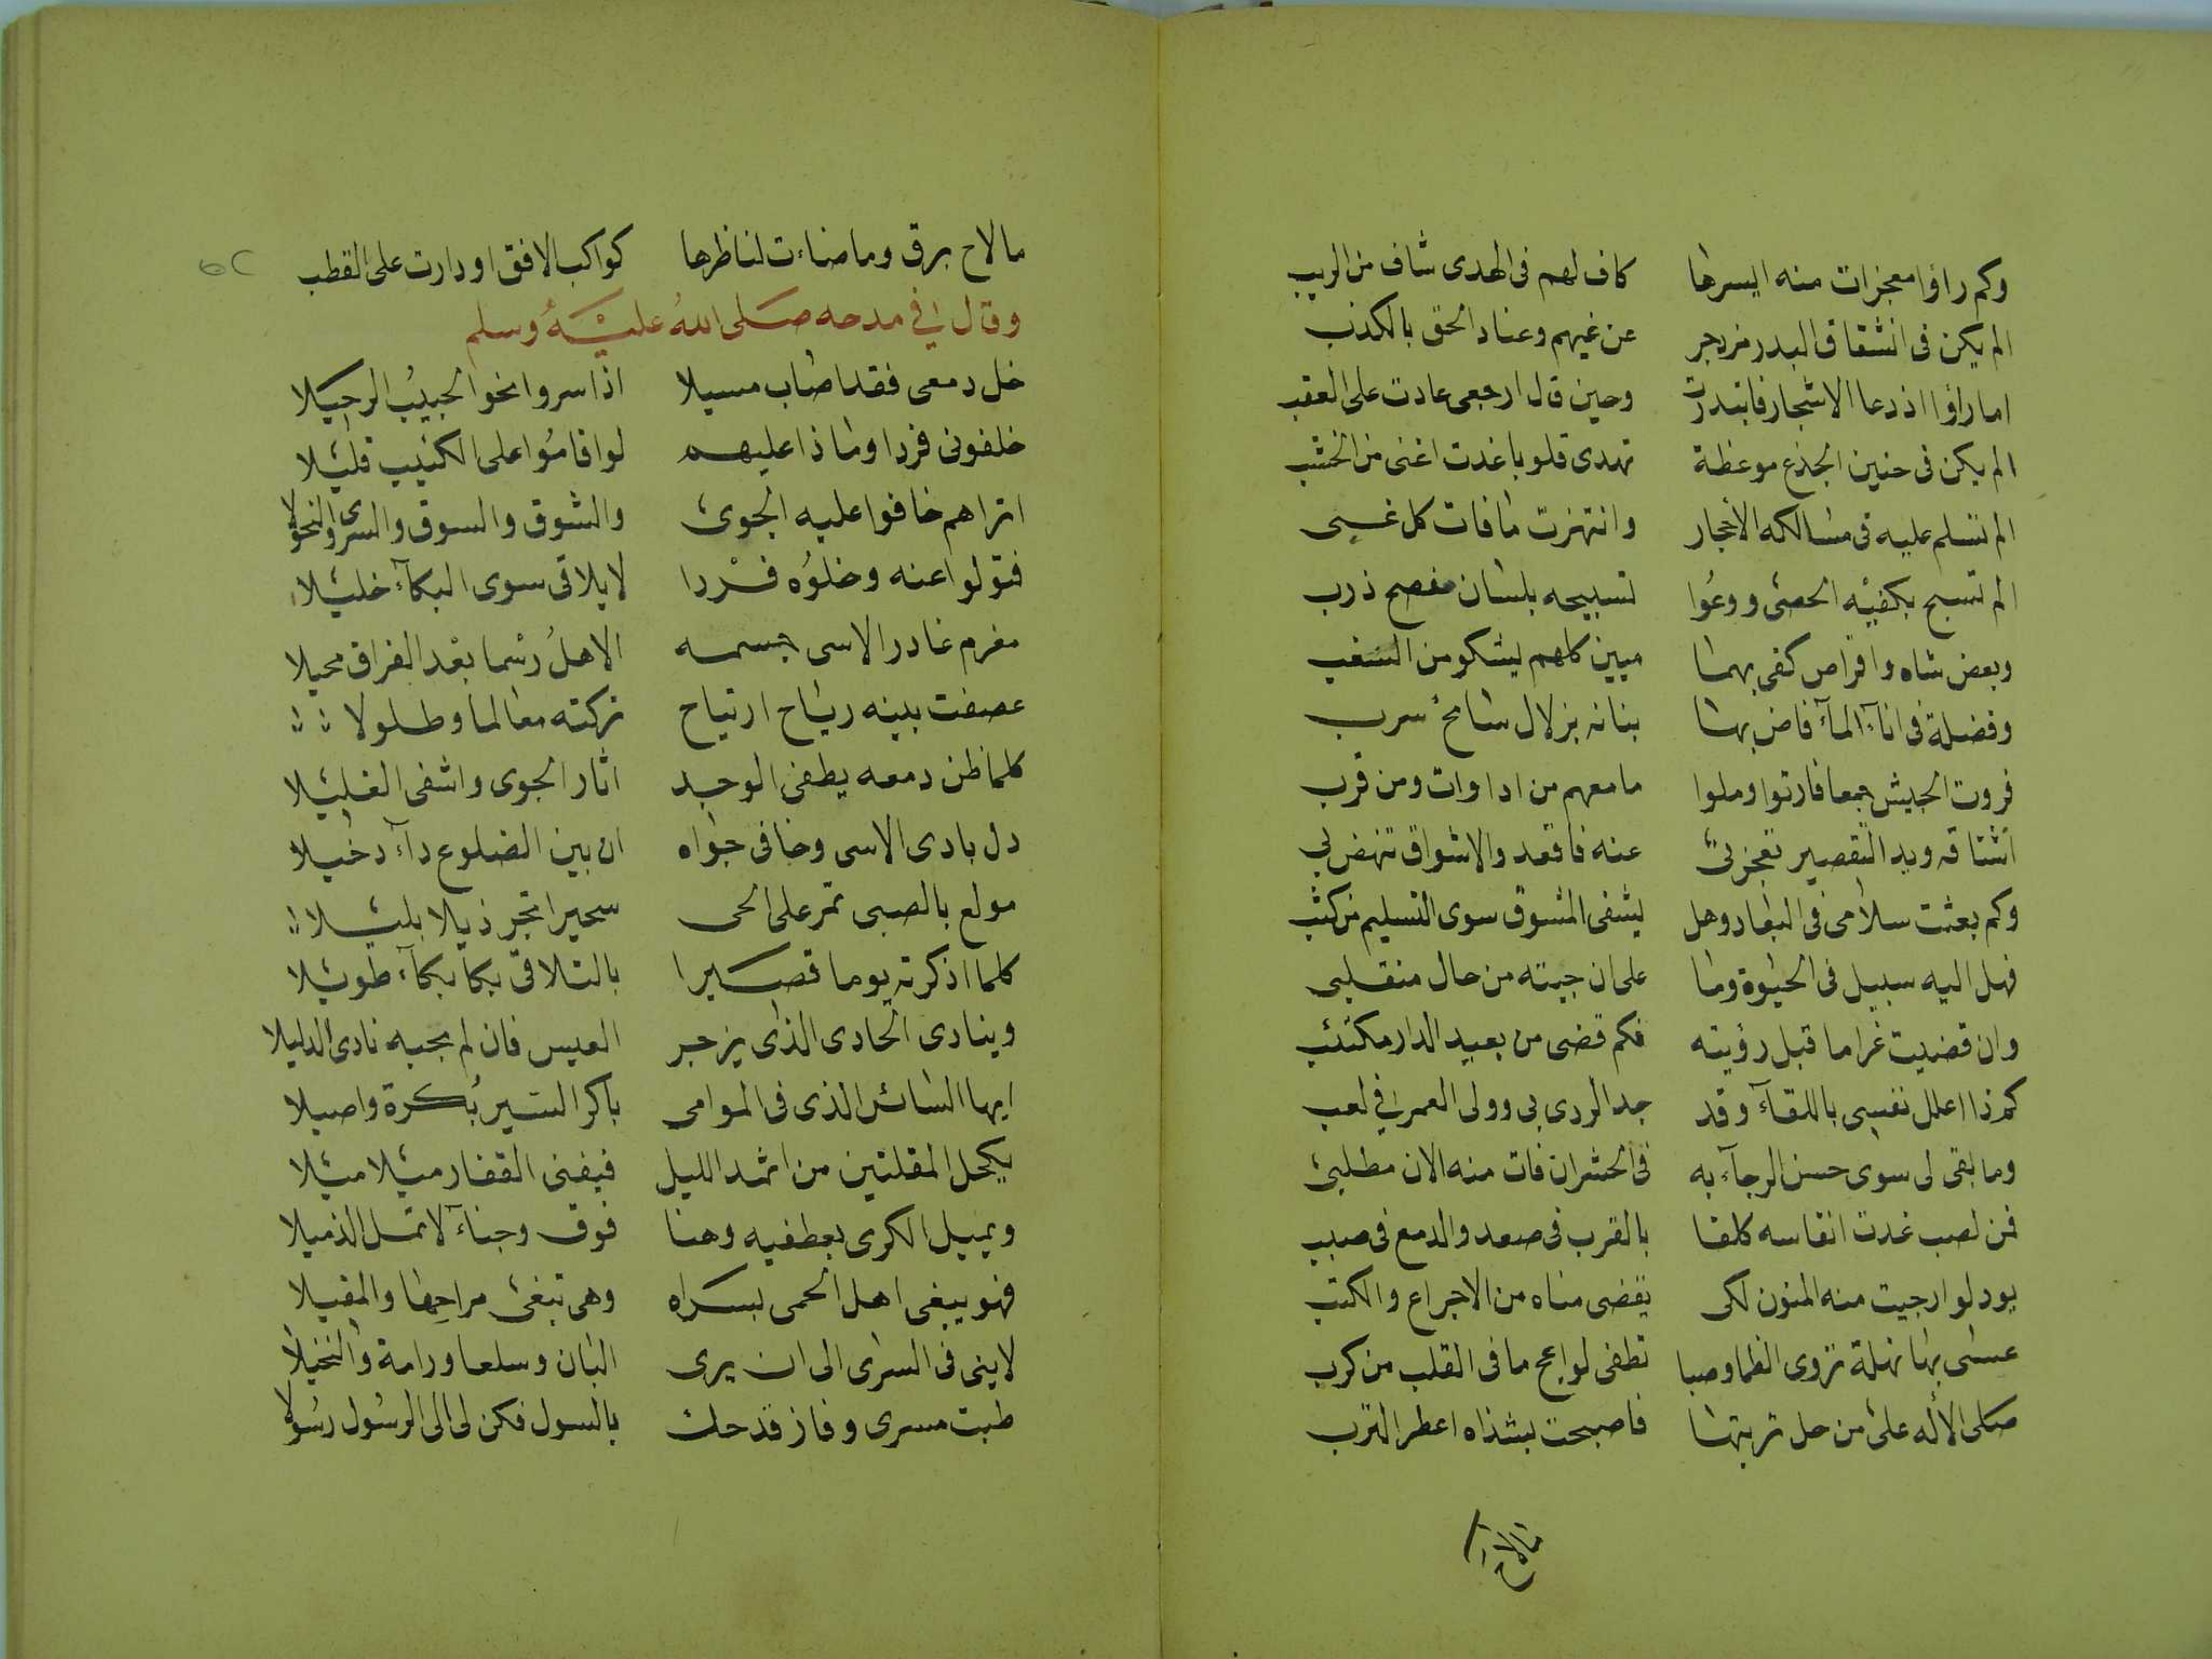 وكم راؤا معجزات منه ايسرها كاف لهم فى الهدى شاف من الريب
الم يكن فى انشقاق البدر مزدجر عن غيهم وعناد الحق بالكذب
اما راؤا اذ دعا الاشجار فابتدرت وحين قال ارجعى عادت على العقب
الم يكن فى حنين الجذع موعظة تهدى قلوبا غدت اغنى من الخشب
الم تسلم عليه فى مسالكه الاحجار وانتهزت مافات كل غبى
الم تسبح بكفيه الحصى ووعوا تسبيحه بلسان مفصح ذرب
وبعض شاه واقراص كفى بهما ميين كلهم يشكو من السغب
وفضلة فى اناء الماء فاض بها بنانه بزلال سامح سرب
فروت الجيش جمعا فارتوا وملوا مامعهم من اداوات ومن قرب
اشتاقه ويد التقصير تعجزنى عنه فاقعد والاشواق تنهض بي
وكم بعثت سلامى فى البعاد وهل يشفى المشوق سوى التسليم من كثب
فهل اليه سبيل فى الحيوة وما على ان جيته من حال منقلبى
وان قضيت غراما قبل رؤيته فكم قضى من بعيد الدار مكتئب
كم ذا اعلل نفسى باللقآء وقد جد الردى بى وولى العمر في لعب
وما بقى لى سوى حسن الرجآء به فى الحشر ان فات منه الان مطلبى
فمن لصب غدت انفاسه كلفا بالقرب فى صعد والدمع فى صبب
يود لو ارجيت منه المنون لكى يقضى مناه من الاجراع والكتب
عسى بها نهلة تروى الظما وصبا تطفى لواعج ما فى القلب من كرب
صلى الأله على من حل تربتها فاصبحت بشذاه اعطر الترب
مالاح
مالاح برق وما ضاءت لناظرها كواكب الافق او دارت على القطب
وقال في مدحه صلى الله عليه وسلم
خل دمعى فقد اصاب مسيلا اذا سروا نحو الحبيب الرحيلا
خلفونى فردا وماذا عليهم لو اقاموا على الكئيب قليلا
اتراهم خافوا عليه الجوى والشوق والسوق والسرى والنحولا
فتولوا عنه وخلوه فردا لا يلاقى سوى البكآء خليلا
مغرم غادر الاسى جسمه الاهل رسما بعد الفراق محيلا
عصفت بينه رياح ارتياح تركته معالما وطلولا
كلما ظن دمعه يطفى الوجد اثار الجوى واشفى الغليلا
دل بادى الاسى وخافى جواه ان بين الضلوع دآء دخيلا
مولع بالصبى تمر على الحى سحيرا تجر ذيلا بليلا
كلما اذكرته يوما قصيرا بالتلاقى بكا بكآء طويلا
وينادى الحادى الذى يزجر العيس فان لم يجبه نادى الدليلا
ايها السائر الذى فى الموامى باكر السير بكرة واصيلا
يكحل المقلتين من اثمد الليل فيفنى القفار ميلا ميلا
ويميل الكرى بعطفيه وهنا فوق وجنآء لا تمل الذميلا
فهو يبغى اهل الحمى بسراه وهى تبغى مراحها والمقيلا
لا ينى فى السرى الى ان يرى البان وسلعا ورامة والنخيلا
طبت مسرى وفاز قدحك بالسول فكن لى الى الرسول رسولا